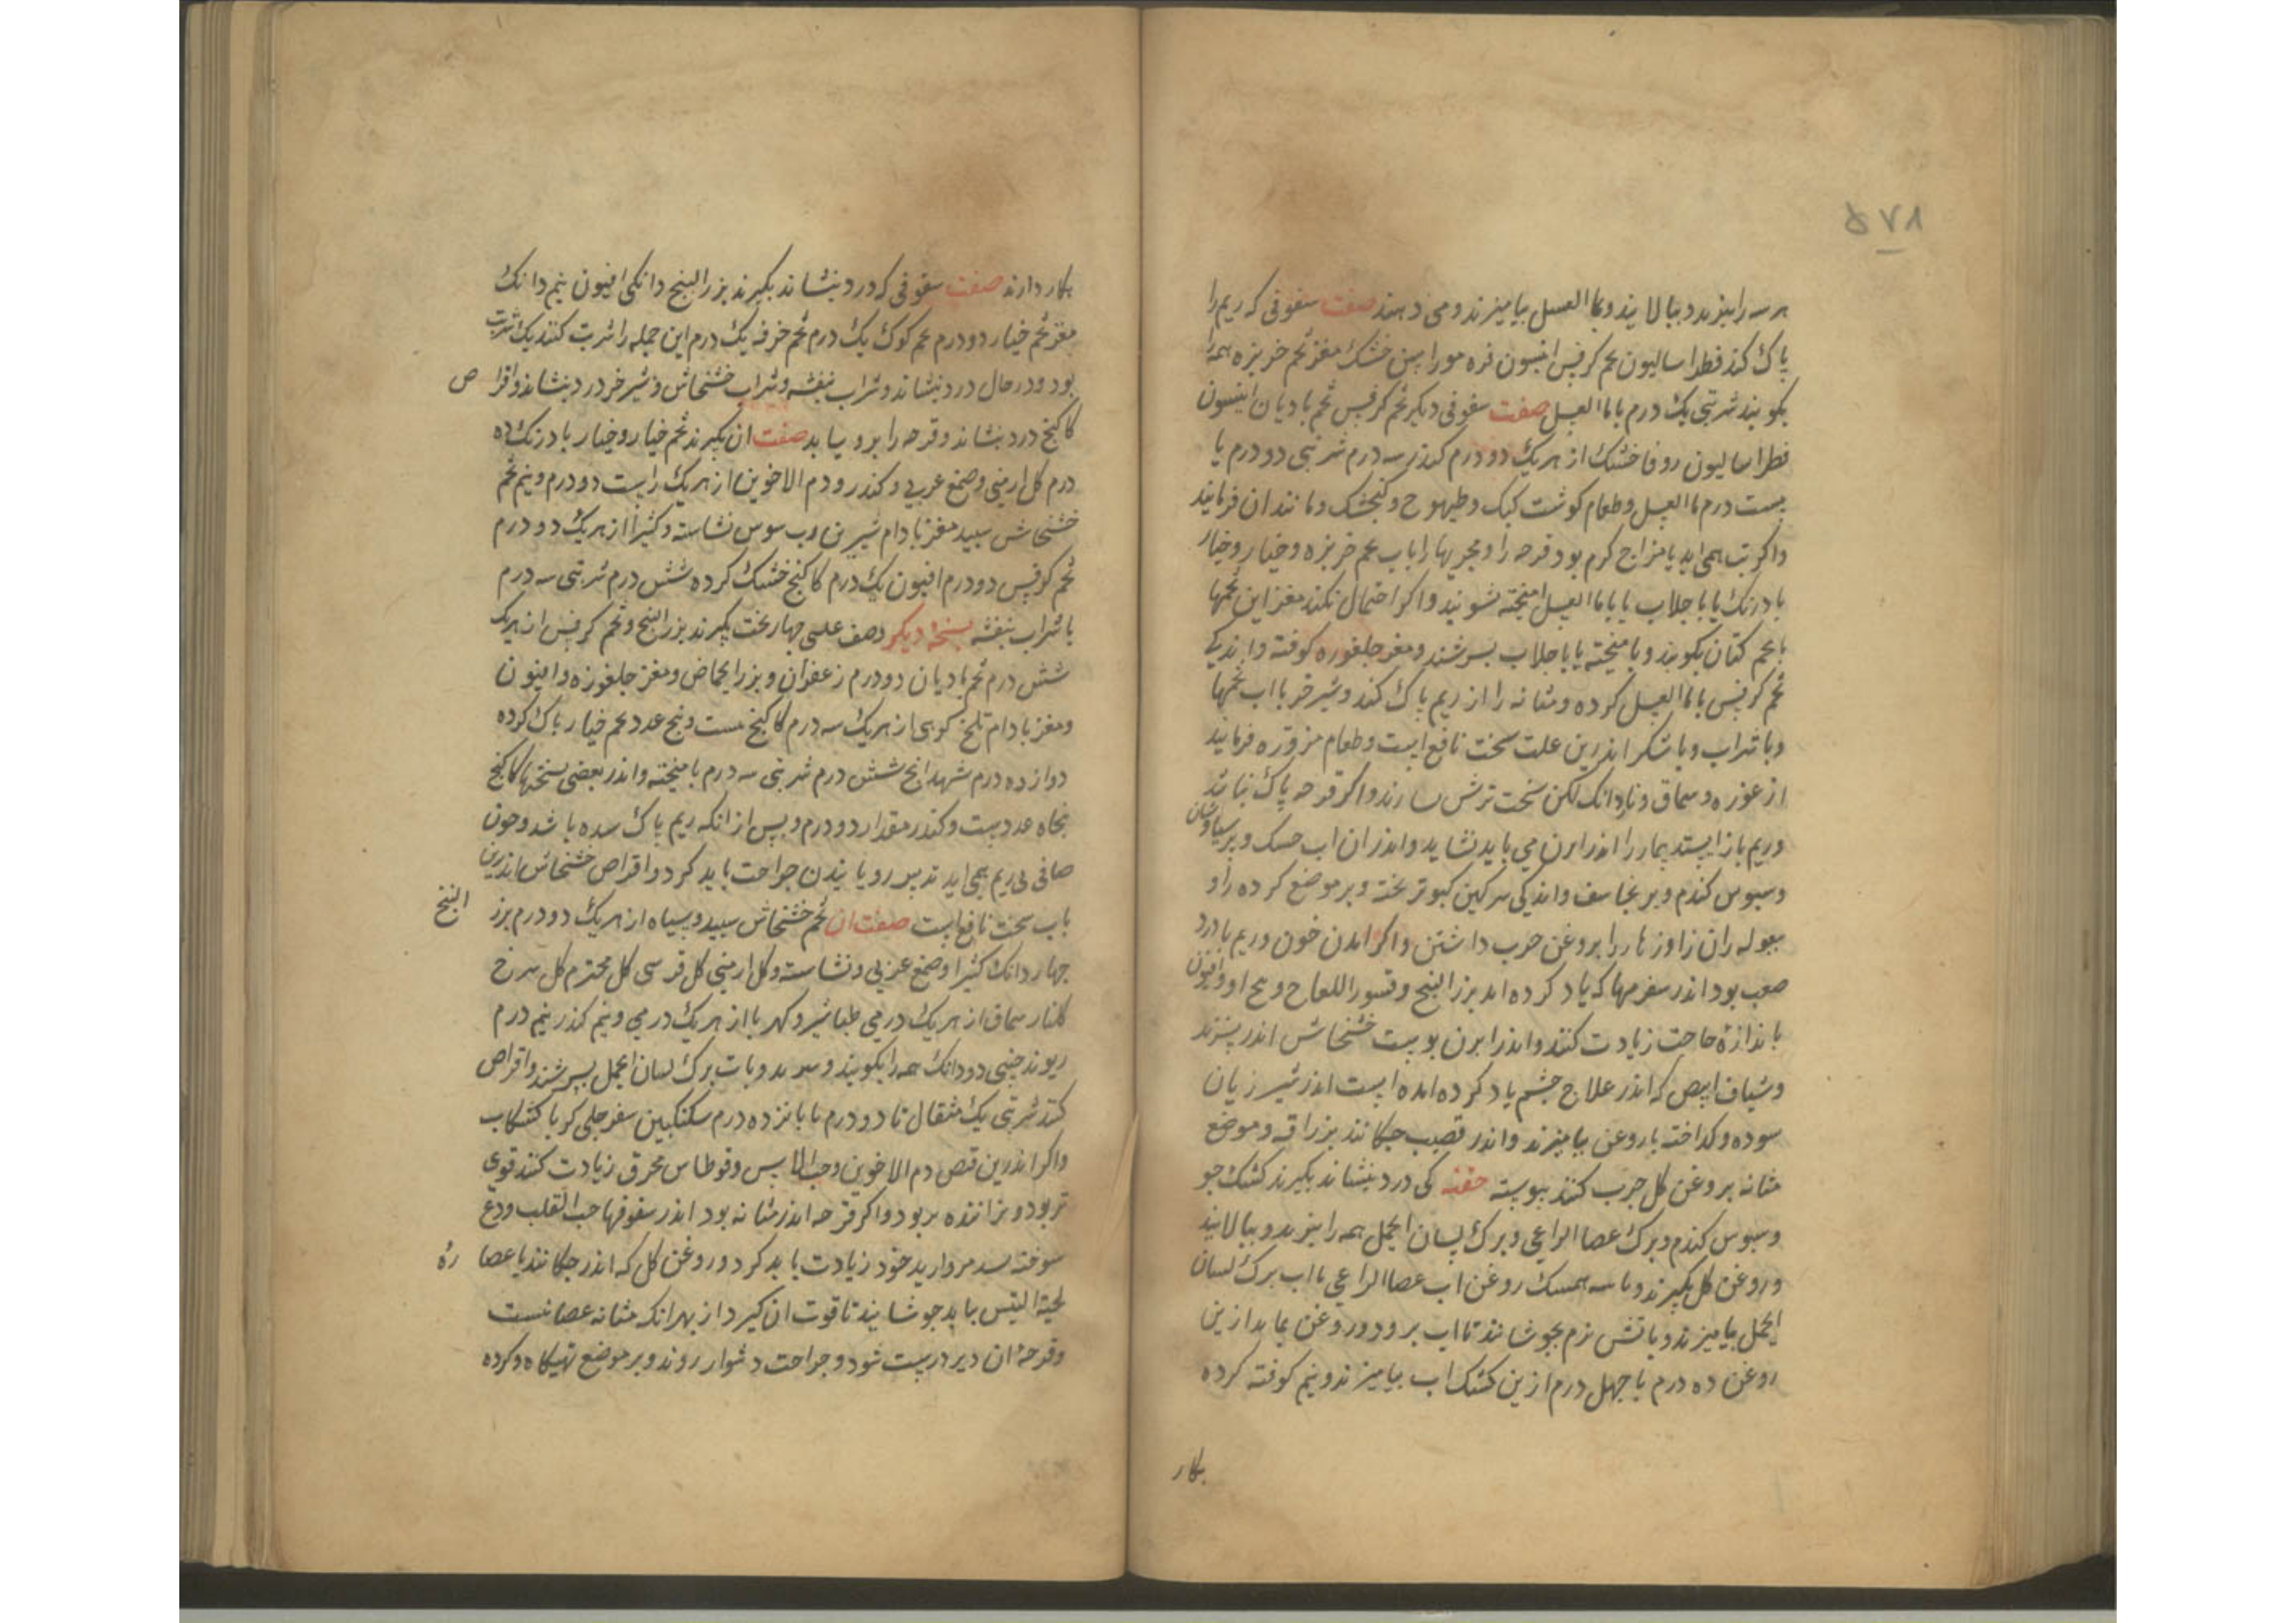 ۵۷۸
هر سه را بپزند و ببالایند و بما العسل بیامیزند و می دهند صفت سفوفی که ریم را
پاک کند فطراسالیون تخم کرفس انیسون نره مورا بین خشک مغز تخم خربزه همه را
بکوبند شربتی یک درم با ما العسل صفت سفوفی دیکر تخم کرفس تخم بادیان انیسون
فطراسالیون زوفا خشک از هر یک دو درم کندر سه درم شربتی دو درم با
بیست درم ما العسل و طعام کوشت کبک و طیهوج و کنجشک و مانند ان فرمایند
واکر تب همی اید یا مزاج کرم بود قرحه را و مجریها را باب تخم خربزه و خیار و خیار
بادرنک یا با جلاب یا با ما العسل امیخته بشویند واکر احتمال نکند مغز این تخمها
با تخم کتان بکوبند و بامیخته یا با جلاب بسرشند و مغز جلغوزه کوفته و اندکی
تخم کرفس با ما العسل کرده و مثانه را از ریم پاک کند و شیر خر با اب تخمها
و با شراب و با شکر اندرین علت سخت نافع است و طعام مزوره فرمایند
از غوره و سماق و ناردانک لکن سخت ترش نسازند و اکر قرحه پاک نباشد
وریم باز ایستد بیمار را اندر ابزن می باید نشاید و اندر ان اب حسک و برسیاوشان
و سبوس کندم و برنجاسف و اندکی سرکین کبوتر پخته و بر موضع کرده را و
بیغوله ران زاوزهار را بروغن چرب داشتن و اکر امدن خون و ریم با درد
صعب بود اندر سفرمها که یاد کرده امد بزر البنج و قشور اللفاح و بیخ او و افیون
باندازهٔ حاجت زیادت کنند و اندر ابزن پوست خشخاش اندر پزند
و شیاف ابیض که اندر علاج چشم یاد کرده امده است اندر شیر زنان
سوده و کداخته با روغن بیامیزند و اندر قضیب چکانند بزراقه و موضع
مثانه بروغن کل چرب کنند پیوسته حقنه کی درد بنشاند بکیرند کشک جو
و سبوس کندم و برک عصا الراعی و برک لسان الحمل همه را بپزند و ببالایند
و روغن کل بکیرند و با سه همسنک روغن اب عصا الراعی با اب برک لسان
الحمل بیامیزند و باتش نرم بجوشانند تا اب برود و روغن بماند ازین
روغن ده درم با چهل درم ازین کشک اب بیامیزند و نیم کوفته کرده
بکار
بکار دارند صفت سفوفی که درد بنشاند بکیرند بزر البنج دانکی افیون نیم دانک
مغز تخم خیار دو درم تخم کوک یک درم تخم خرفه یک درم این جمله را شربت کنند یک شربت
بود و در حال درد بنشاند و شراب بنفشه و شراب خشخاش و شیر خر درد بنشاند و اقراص
کاکنج درد بنشاند و قرحه را برویاند صفت ان بکیرند تخم خیار و خیار بادرنک ده
درم کل ارمنی و صمغ عربی و کندر و دم الاخوین از هر یک راست دو درم و نیم تخم
خشخاش سپید مغز بادام شیرین رب سوس نشاسته و کثیرا از هر یک دو درم
تخم کرفس دو درم افیون یک درم کاکنج خشک کرده شش درم شربتی سه درم
با شراب بنفشه نسخهٔ دیکر وصف علسی چهار بخت بکیرند بزر البنج و تخم کرفس از هر یک
شش درم تخم بادیان دو درم زعفران و بزر الحماض و مغز جلغوزه و افیون
و مغز بادام تلخ کوهی از هر یک سه درم کاکنج بیست و پنج عدد تخم خیار پاک کرده
دوازده درم شهدانج شش درم شربتی سه درم بامیخته و اندر بعضی نسختها کاکنج
پنجاه عدد است و کندر مقدار دو درم و پس از انکه ریم پاک شده باشد و خون
صافی بی ریم همی اید تدبیر رویانیدن جراحت باید کرد و اقراص خشخاش اندرین
باب سخت نافع است صفت ان تخم خشخاش سپید و سیاه از هر یک دو درم بزر البنج
چهار دانک کثیرا و صمغ عربی و نشاسته و کل ارمنی کل قرسی کل مختوم کل سرخ
کلنار سماق از هر یک درمی طباشیر و کهربا از هر یک درمی و نیم کندر نیم درم
ریوند چینی دو دانک همه را بکوبند و بپزند و باب برک لسان الحمل بسرشند و اقراص
کنند شربتی یک مثقال تا دو درم با پانزده درم سکنکبین سفرجلی کر با کشکاب
واکر اندرین قرص دم الاخوین و حب الاس و قرطاس محرق زیادت کنند قوی
تر بود و نزاننده تر بود و اکر قرحه اندر مثانه بود اندر سفوفها حب القلب و ودع
سوخته بسد مروارید خود زیادت باید کرد و روغن کل که اندر چکانند با عصاره
لحیة التیس بباید جوشانید تا قوت ان کیرد از بهر انکه مثانه عصبانیست
و قرحهٔ ان دیر درست شود و جراحت دشوار روند و بر موضع تهیکاه و کرده